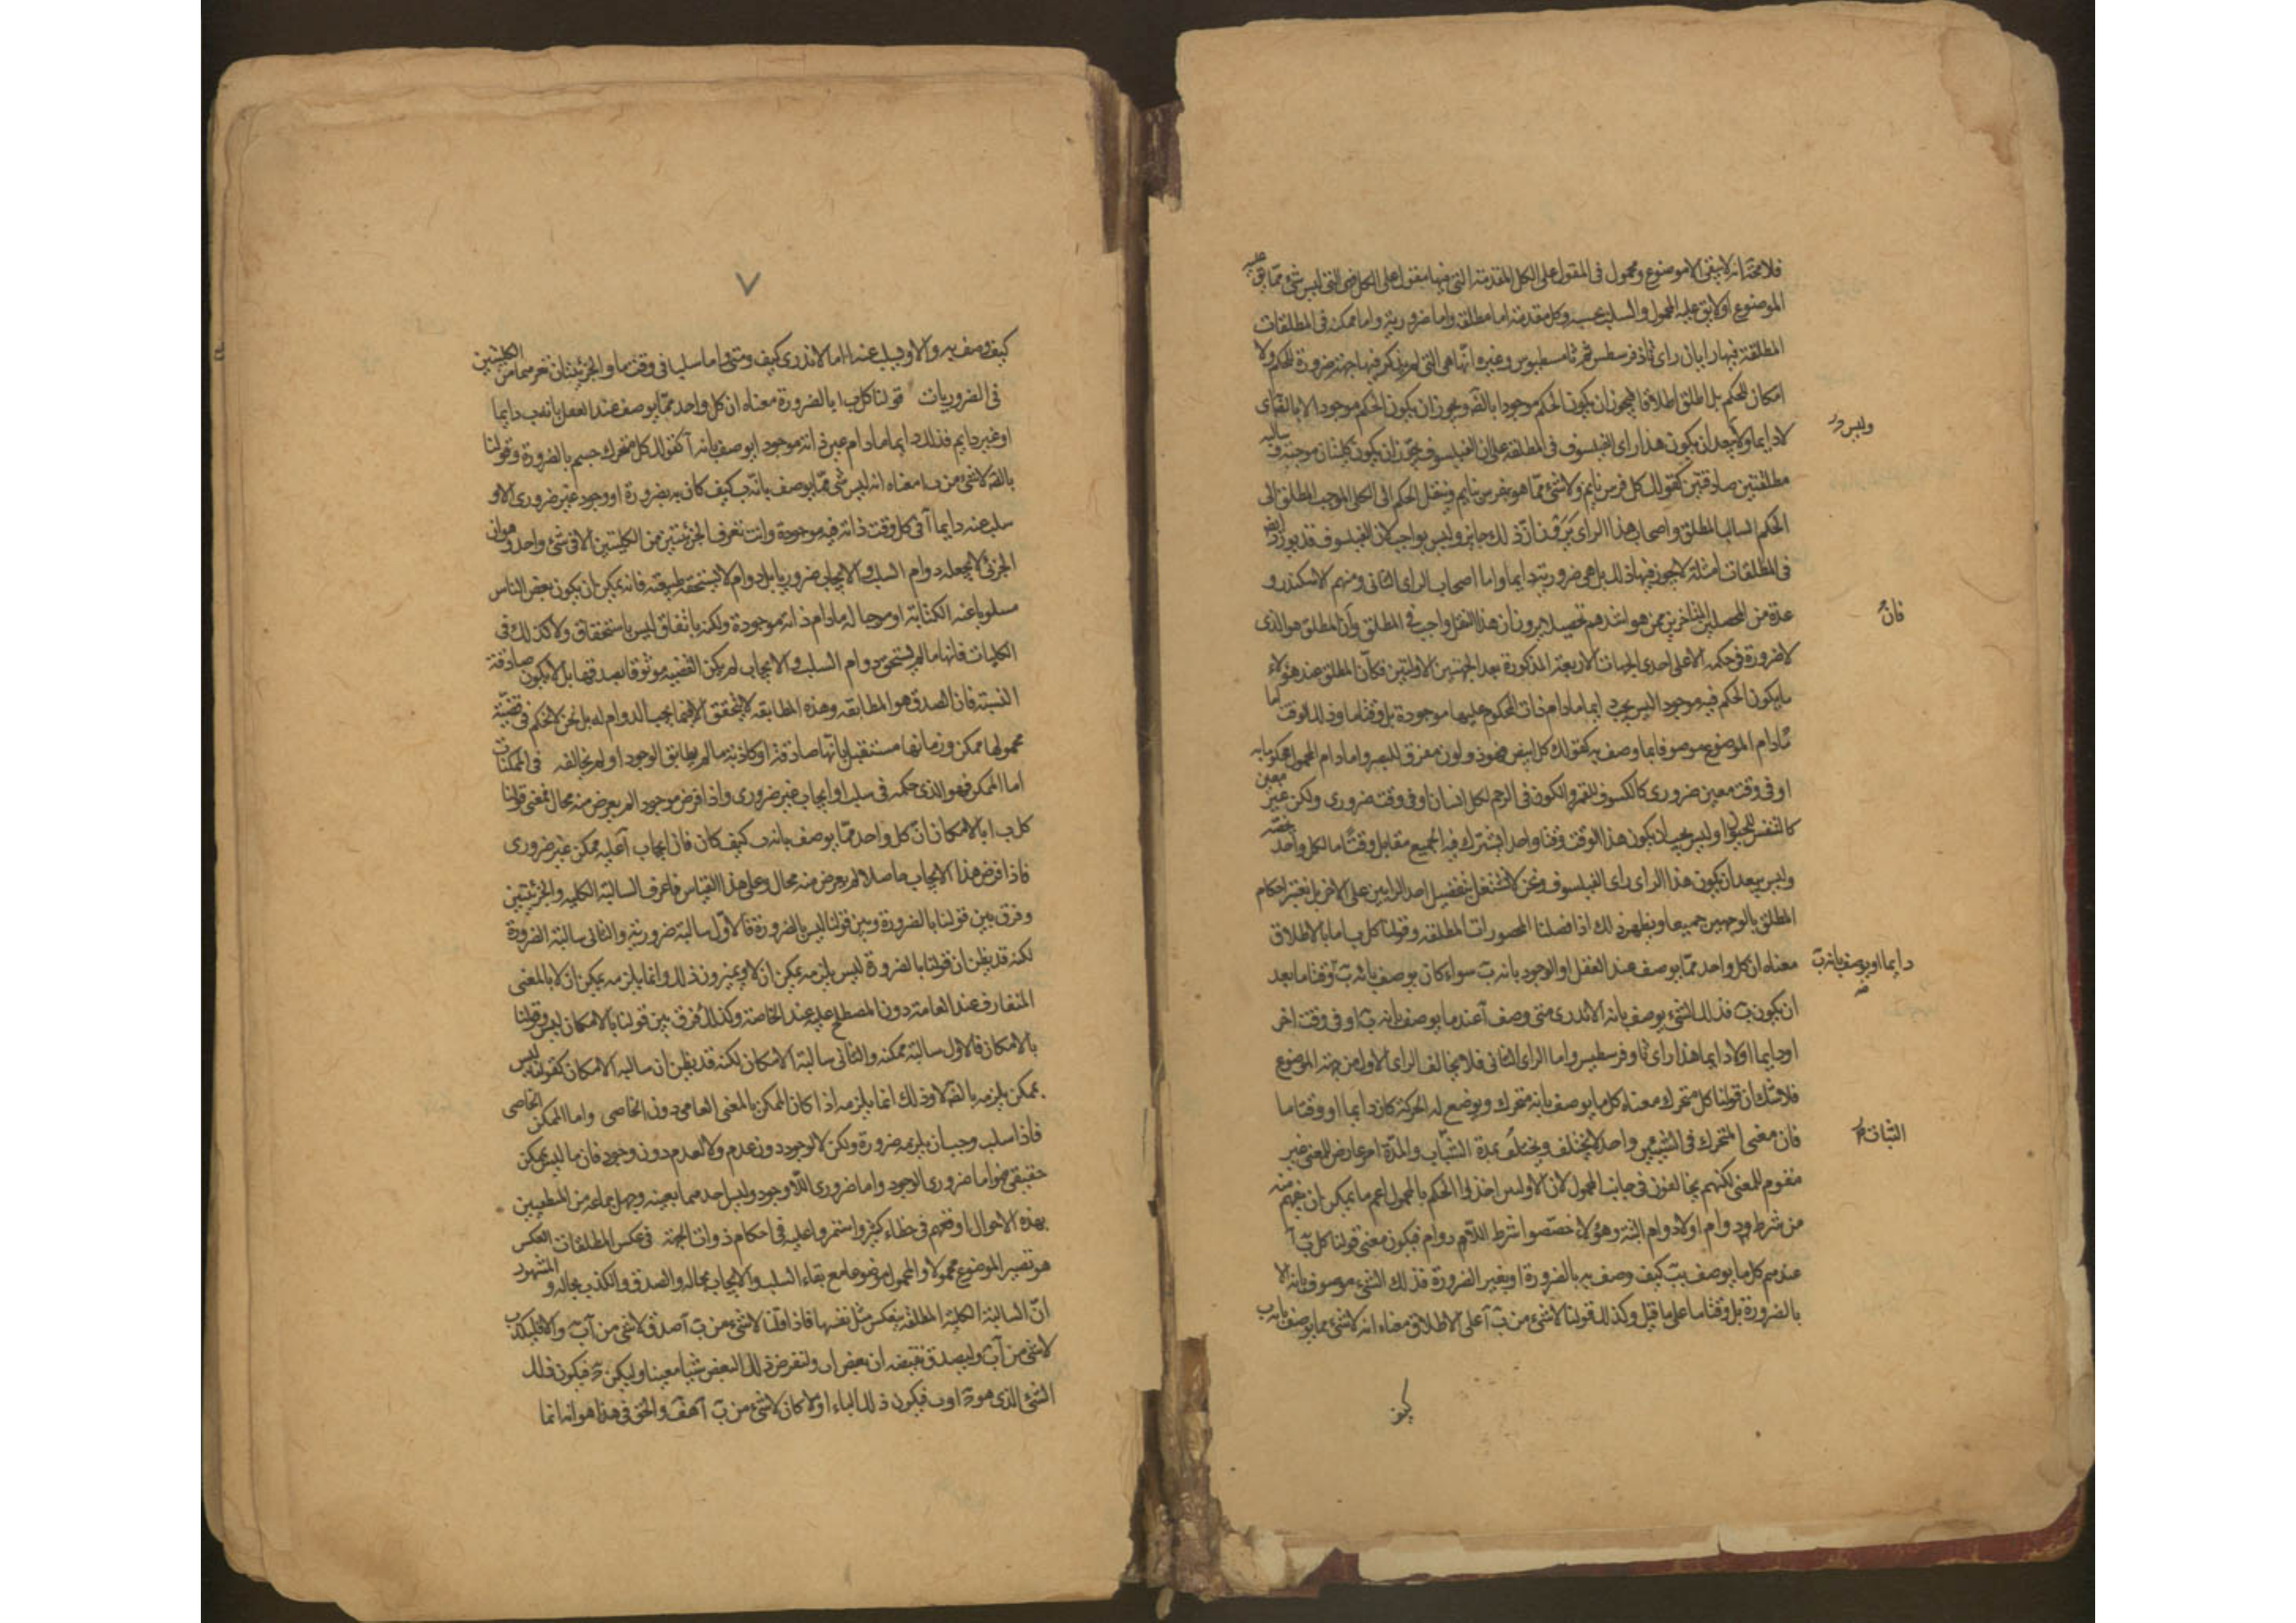 فلا محة انه لا يبقى الا موضوع ومحمول فى المقول على الكل المقدمة التى فيها مقول على الكل هى التى ليس شئ مما يق عليه
الموضوع اولا يق عليه المحمول والسلب بحسبه وكل مقدمة اما مطلقة واما ضرورية واما ممكنه فى المطلقات
المطلقة فيها رايان راى ثاوفرسطس ثم ثامسطيوس وغيره انها هى التى لم يذكر فيها جهة ضرورة للحكم ولا
امكان للحكم بل اطلق اطلاقا فيجوز ان يكون الحكم موجودا بالضه ويجوز ان يكون الحكم موجودا لا بالضه اى
لا دايما ولا يبعد ان يكون هذا راى الفيلسوف فى المطلقة على ان الفيلسوف يجوز ان يكون كليتان موجبة وسالبه
مطلقتين صادقتين كقولك كل فرس نايم ولا شئ مما هو فرس نايم وينقل الحكم الى الكلى الموجب المطلق الى
الحكم السالب المطلق واصحاب هذا الراى يرون ان ذلك جايز وليس بواجب لان الفيلسوف قد يورد ايضا
فى المطلقات امثلة لا يجوز فيها ذلك بل هى ضرورية دايما واما اصحاب الراى الثانى ومنهم الاسكندر و
عدة من المحصلين المتاخرين ممن هو اشدهم تحصيلا يرون ان هذا النقل واجب فى المطلق وان المطلق هو الذى
لا ضرورة فى حكمه الا على احدى الجهات الاربعة المذكورة بعد الجهتين الاوليين فكان المطلق عند هؤلاء
ما يكون الحكم فيه موجودا ليس يجب دايما ما دام ذات المحكوم عليها موجودة بل وقتا ما وذلك الوقت اما
ما دام الموضوع موصوفا بما وصف به كقولك كل ابيض فهو ذو لون مفرق للبصر واما ما دام المحمول محكوما به
او فى وقت معين ضرورى كالكسوف للقمر والكون فى الرحم لكل انسان او فى وقت ضرورى ولكن غير معين
كالتنفس للحيوان وليس يجب ان يكون هذا الوقت وقتا واحدا يشترك فيه الجميع مقابل وقتا ما لكل واحد يخصه
وليس ببعيد ان يكون هذا الراى راى الفيلسوف ونحن لا نشتغل بتفضيل احد الرايين على الاخر بل نعتبر احكام
المطلق بالوجهين جميعا ويظهر ذلك اذا فصلنا المحصورات المطلقه وقولنا كل ب ا ما بالاطلاق
معناه ان كل واحد مما يوصف عند العقل او الوجود بانه ب سواء كان يوصف بانه ب وقتا ما بعد
ان يكون ب فذلك الشئ يوصف بانه ا لا ندرى متى وصف آ عند ما يوصف بانه ب او فى وقت اخر
او دايما اولا دايما هذا راى ثاوفرسطيس واما الراى الثانى فلا يخالف الراى الاول من جهة الموضوع
فلا شك ان قولنا كل متحرك معناه كل ما يوصف بانه متحرك ويوضع له الحركة كان دايما او وقتا ما
فان معنى المتحرك فى الشيئين واحد لا يختلف ويختلف بمدة الثبات والمدة امر عارض للمعنى غير
مقوم للمعنى لكنهم يخالفون فى جانب المحمول لان الاولين اخذوا الحكم بالمحمول اعم ما يمكن ان يفهم منه
من شرط دوام اولا دوام البتة وهؤلاء خصصوا شرط اللادوام فيكون معنى قولنا كل ب آ
عندهم كل ما يوصف بب كيف وصف به بالضرورة او بغير الضرورة فذلك الشئ موصوف بانه ا لا
بالضرورة بل وقتا ما على ما قيل وكذلك قولنا لا شئ من ب آ على الاطلاق معناه انه لا شئ مما يوصف بانه ب
كيف
وليس
فان
دايما او يوصف بانه ب
الثبات
٧
كيف وصف به والا ويسلب عنه ا اما لا ندرى كيف ومتى واما سلبا فى وقت ما والجزئيتان تعرفهما من الكليتين
فى الضروريات قولنا كل ب ا بالضرورة معناه ان كل واحد مما يوصف عند العقل بانه ب دايما
او غير دايم فذلك دايما ما دام عين ذاته موجودا يوصف بانه آ كقولك كل متحرك جسم بالضرورة وقولنا
بالضه لا شئ من ب ا معناه انه ليس شئ مما يوصف بانه ب كيف كان به بضرورة او وجود غير ضرورى الا و
سلب عنه دايما آ فى كل وقت ذاته فيه موجودة وانت تعرف الجزئيتين من الكليتين الا فى شئ واحد وهو ان
الجزئى لا يجعله دوام السلب والايجاب ضروريا بل دوام لا يستحقه طبيعته فانه يمكن ان يكون بعض الناس
مسلوبا عنه الكتابة او موجبا له ما دام ذاته موجودة ولكنه باتفاق ليس باستحقاق ولا كذلك فى
الكليات فانها ما لم يستحق دوام السلب والايجاب لم يكن القضيه موثوقا بصدقها بل لا يكون صادقة
البتة فان الصدق هو المطابقه وهذه المطابقه لا يتحقق الا فيما يجب الدوام له بل نحن لا نحكم فى قضية
محمولها ممكن وزمانها مستقبل بانها صادقة او كاذبة ما لم يطابق الوجود او لم يخالفه فى الممكنات
اما الممكن فهو الذى حكمه فى سلب او ايجاب غير ضرورى واذا فرض موجودا لم يعرض منه محال فمعنى قولنا
كل ب ا بالامكان ان كل واحد مما يوصف بانه ب كيف كان فان ايجاب آ عليه ممكن غير ضرورى
فاذا فرض هذا الايجاب حاصلا لم يعرض منه محال وعلى هذا القياس فاعرف السالبة الكليه والجزئيتين
وفرق بين قولنا بالضرورة وبين قولنا ليس بالضرورة فالاول سالبة ضرورية والثانى سالبة الضرورة
لكنه قد يظن ان قولنا بالضرورة ليس يلزمه يمكن ان لا ويميزون ذلك وانما يلزمه يمكن ان لا بالمعنى
المتعارف عند العامة دون المصطلح عليه عند الخاصة وكذلك فرق بين قولنا بالامكان ليس وقولنا ليس
بالامكان فالاول سالبة ممكنه والثانى سالبة الامكان لكنه قد يظن ان سالبه الامكان كقولنا ليس
يمكن يلزمه بالضه لا وذلك انما يلزمه اذا كان الممكن بالمعنى العامى دون الخاصى واما الممكن الخاصى
فاذا سلب وجب ان يلزمه ضرورة ولكن لا لوجود دون عدم ولا لعدم دون وجود فان ما ليس يمكن
حقيقى فهو اما ضرورى الوجود واما ضرورى اللاوجود وليس احدهما بعينه وجهل جماعة من المنطقيين
بهذه الاحوال اوقعهم فى خطاء كثير واستمروا عليه فى احكام ذوات الجهة فى عكس المطلقات العكس
هو تصيير الموضوع محمولا والمحمول موضوعا مع بقاء السلب والايجاب بحاله والصدق والكذب بحاله والمشهور
ان السالبة الكلية المطلقه ينعكس مثل نفسها فاذا قلنا لا شئ من ب آ صدق لا شئ من آ ب والا فليكذب
لا شئ من آ ب وليصدق نقيضه ان بعض ا ب ولنفرض ذلك البعض شيا معينا وليكن ج فيكون ذلك
الشئ الذى هو ج ا وب فيكون ذلك الباء ا ولا كان لا شئ من ب آ هف والحق فى هذا هو انه انما